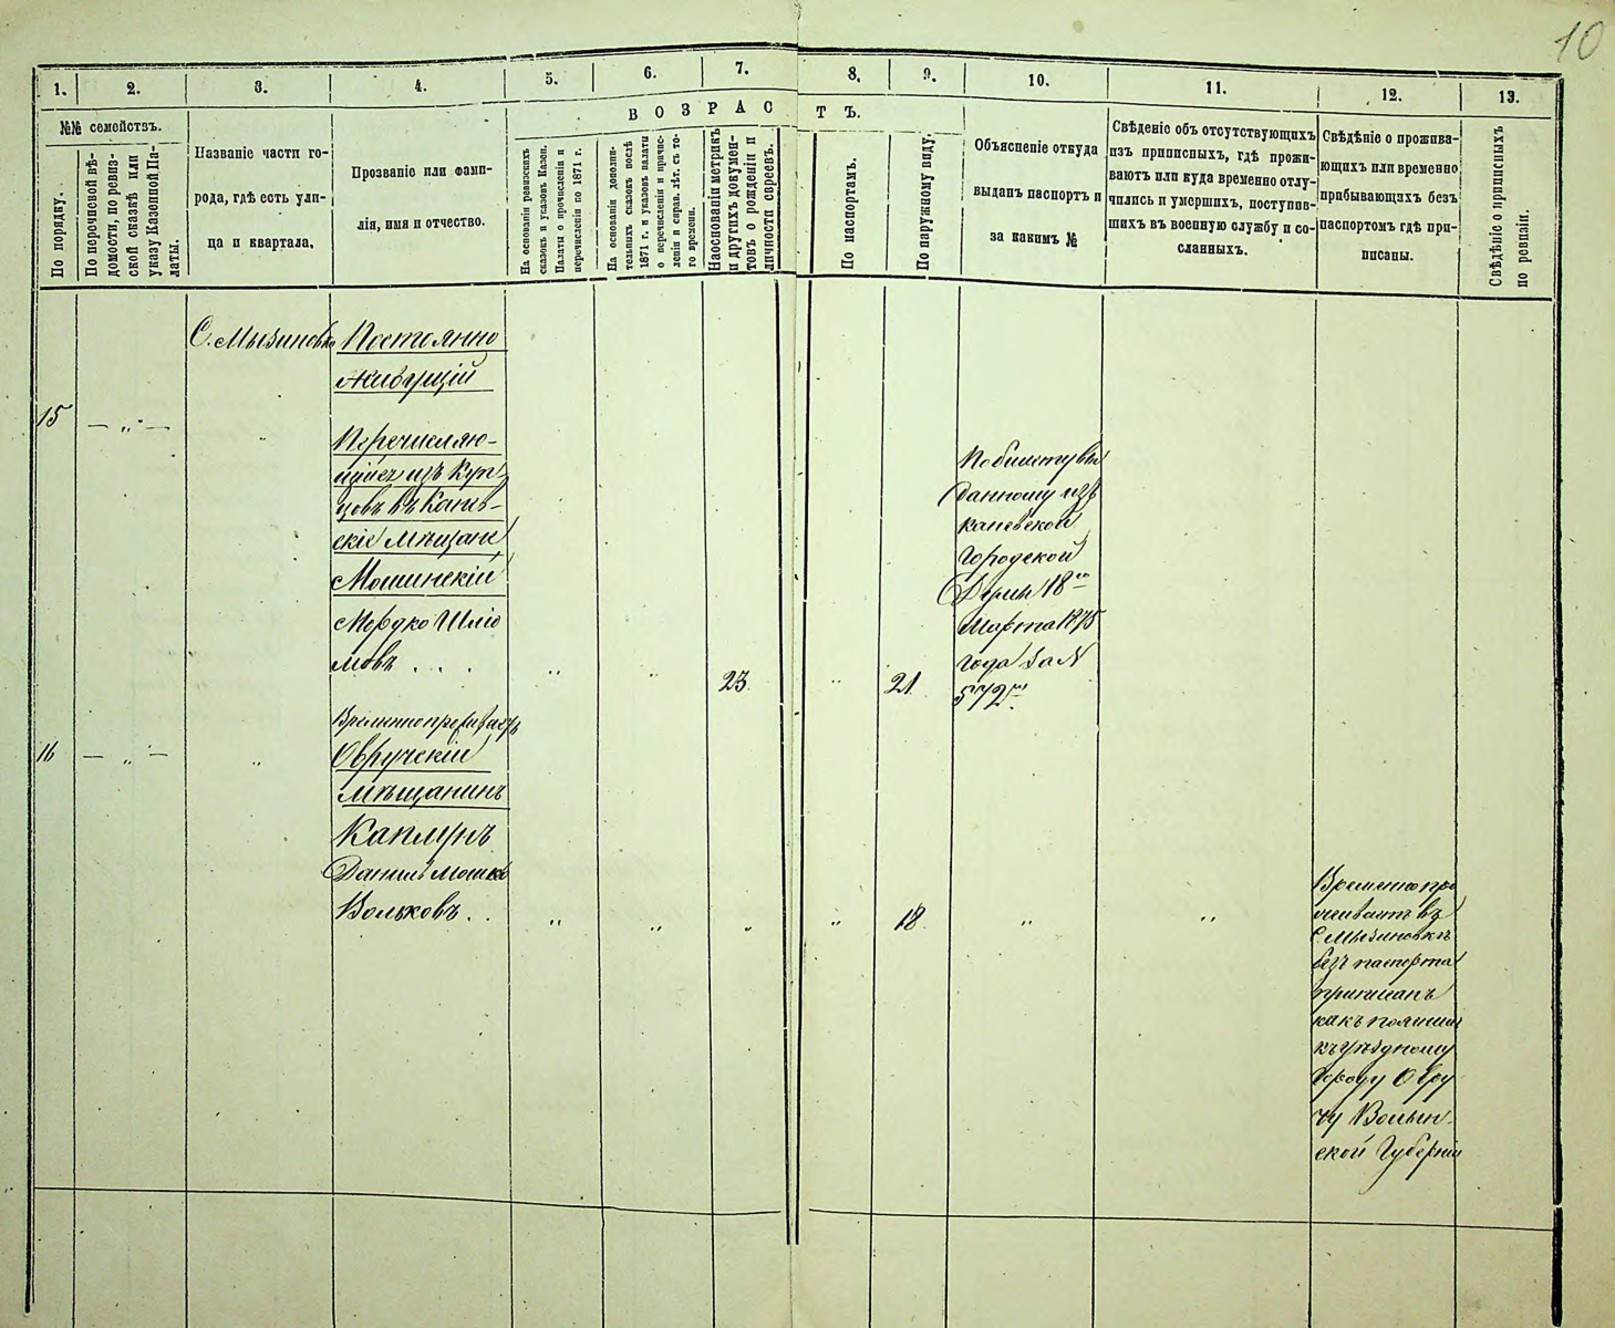 10
1.
2.
3.
4.
5.
6.
7.
8.
9.
10.
11.
12.
13.
№№ семействъ.
По порядку.
По перечневой вѣ-
домости, по ревиз-
ской сказкѣ или
указу Казенной Па-
латы.
Названіе части го-
рода, гдѣ есть ули-
ца и квартала.
Прозваніе или фами-
лія, имя и отчество.
ВОЗРАСТЪ.
На основаніи ревизскихъ
сказокъ и указовъ Казен.
Палаты о причисленіи и
перечисленіи по 1871 г.
На основаніи дополни-
тельныхъ сказокъ послѣ
1871 г. и указовъ палаты
о перечисленіи и причис-
леніи и справ. лѣт. съ то-
го времени.
На основаніи метрикъ
и другихъ докумен-
товъ о рожденіи и
личности евреевъ.
По паспортамъ.
По наружному виду.
Объясненіе откуда
выданъ паспортъ и
за какимъ №
Свѣденіе объ отсутствующихъ
изъ приписныхъ, гдѣ прожи-
ваютъ или куда временно отлу-
чились и умершихъ, поступив-
шихъ въ военную службу и со-
сланныхъ.
Свѣдѣніе о прожива-
ющихъ или временно
прибывающихъ безъ
паспортомъ гдѣ при-
писаны.
Свѣдѣніе о приписныхъ
по ревизіи.
С. Мызиновка
Постоянно
живущій
15
— „ —
„
Перечисляю-
щійся изъ Куп-
цовъ въ Канев-
скіе Мѣщане
Мошинскій
Мордко Шліо
мовъ . . .
„
„
23
„
21
По билету вы
данному изъ
Каневской
Городской
Думы 18го
Марта 1875
года за №
572м.
16
— „ —
„
Временно
Овручскій
мѣщанинъ
Каплунъ
Даниль Мошко
Вольковъ . .
„
„
„
„
18
„
„
Временно про
живаетъ въ
С. Мызиновкѣ
безъ паспорта
приписанъ
какъ
къ уѣздному
городу Овру
чу Волын-
ской Губерніи